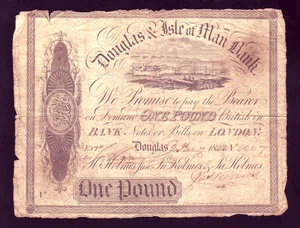 Douglas & Isle of Man Bank.
We Promise to pay the Bearer
on Demand ONE POUND British in
BANK Notes or Bills on LONDON:
Douglas
H. Holmes Jun. Jn. Holmes & Js. Holmes.
One Pound